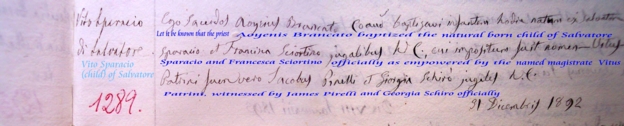 Vito Sparacio
di Salvatore
Vito Sparacio
(child) of Salvatore
1289.
Ego Sacerdos Aloysius Brancato Coad. baptizavi infantem hodie natum ex Salvatore
Let it be known that the priest Aoyenis Brancato baptized the natural born child of Salvatore
Sparacio et Francisca Sciortino jugalibus H. C., cui impositum fuit nomen Vitus
Sparacio and Francesca Sciortino officially as empowered by the named magistrate Vitus
Patrini fuerunt Jacobus Pirelli et Giorgia Schirò jugales H. C.
Patrini, witnessed by James Pirelli and Georgia Schirò officially
31 Decembris 1892